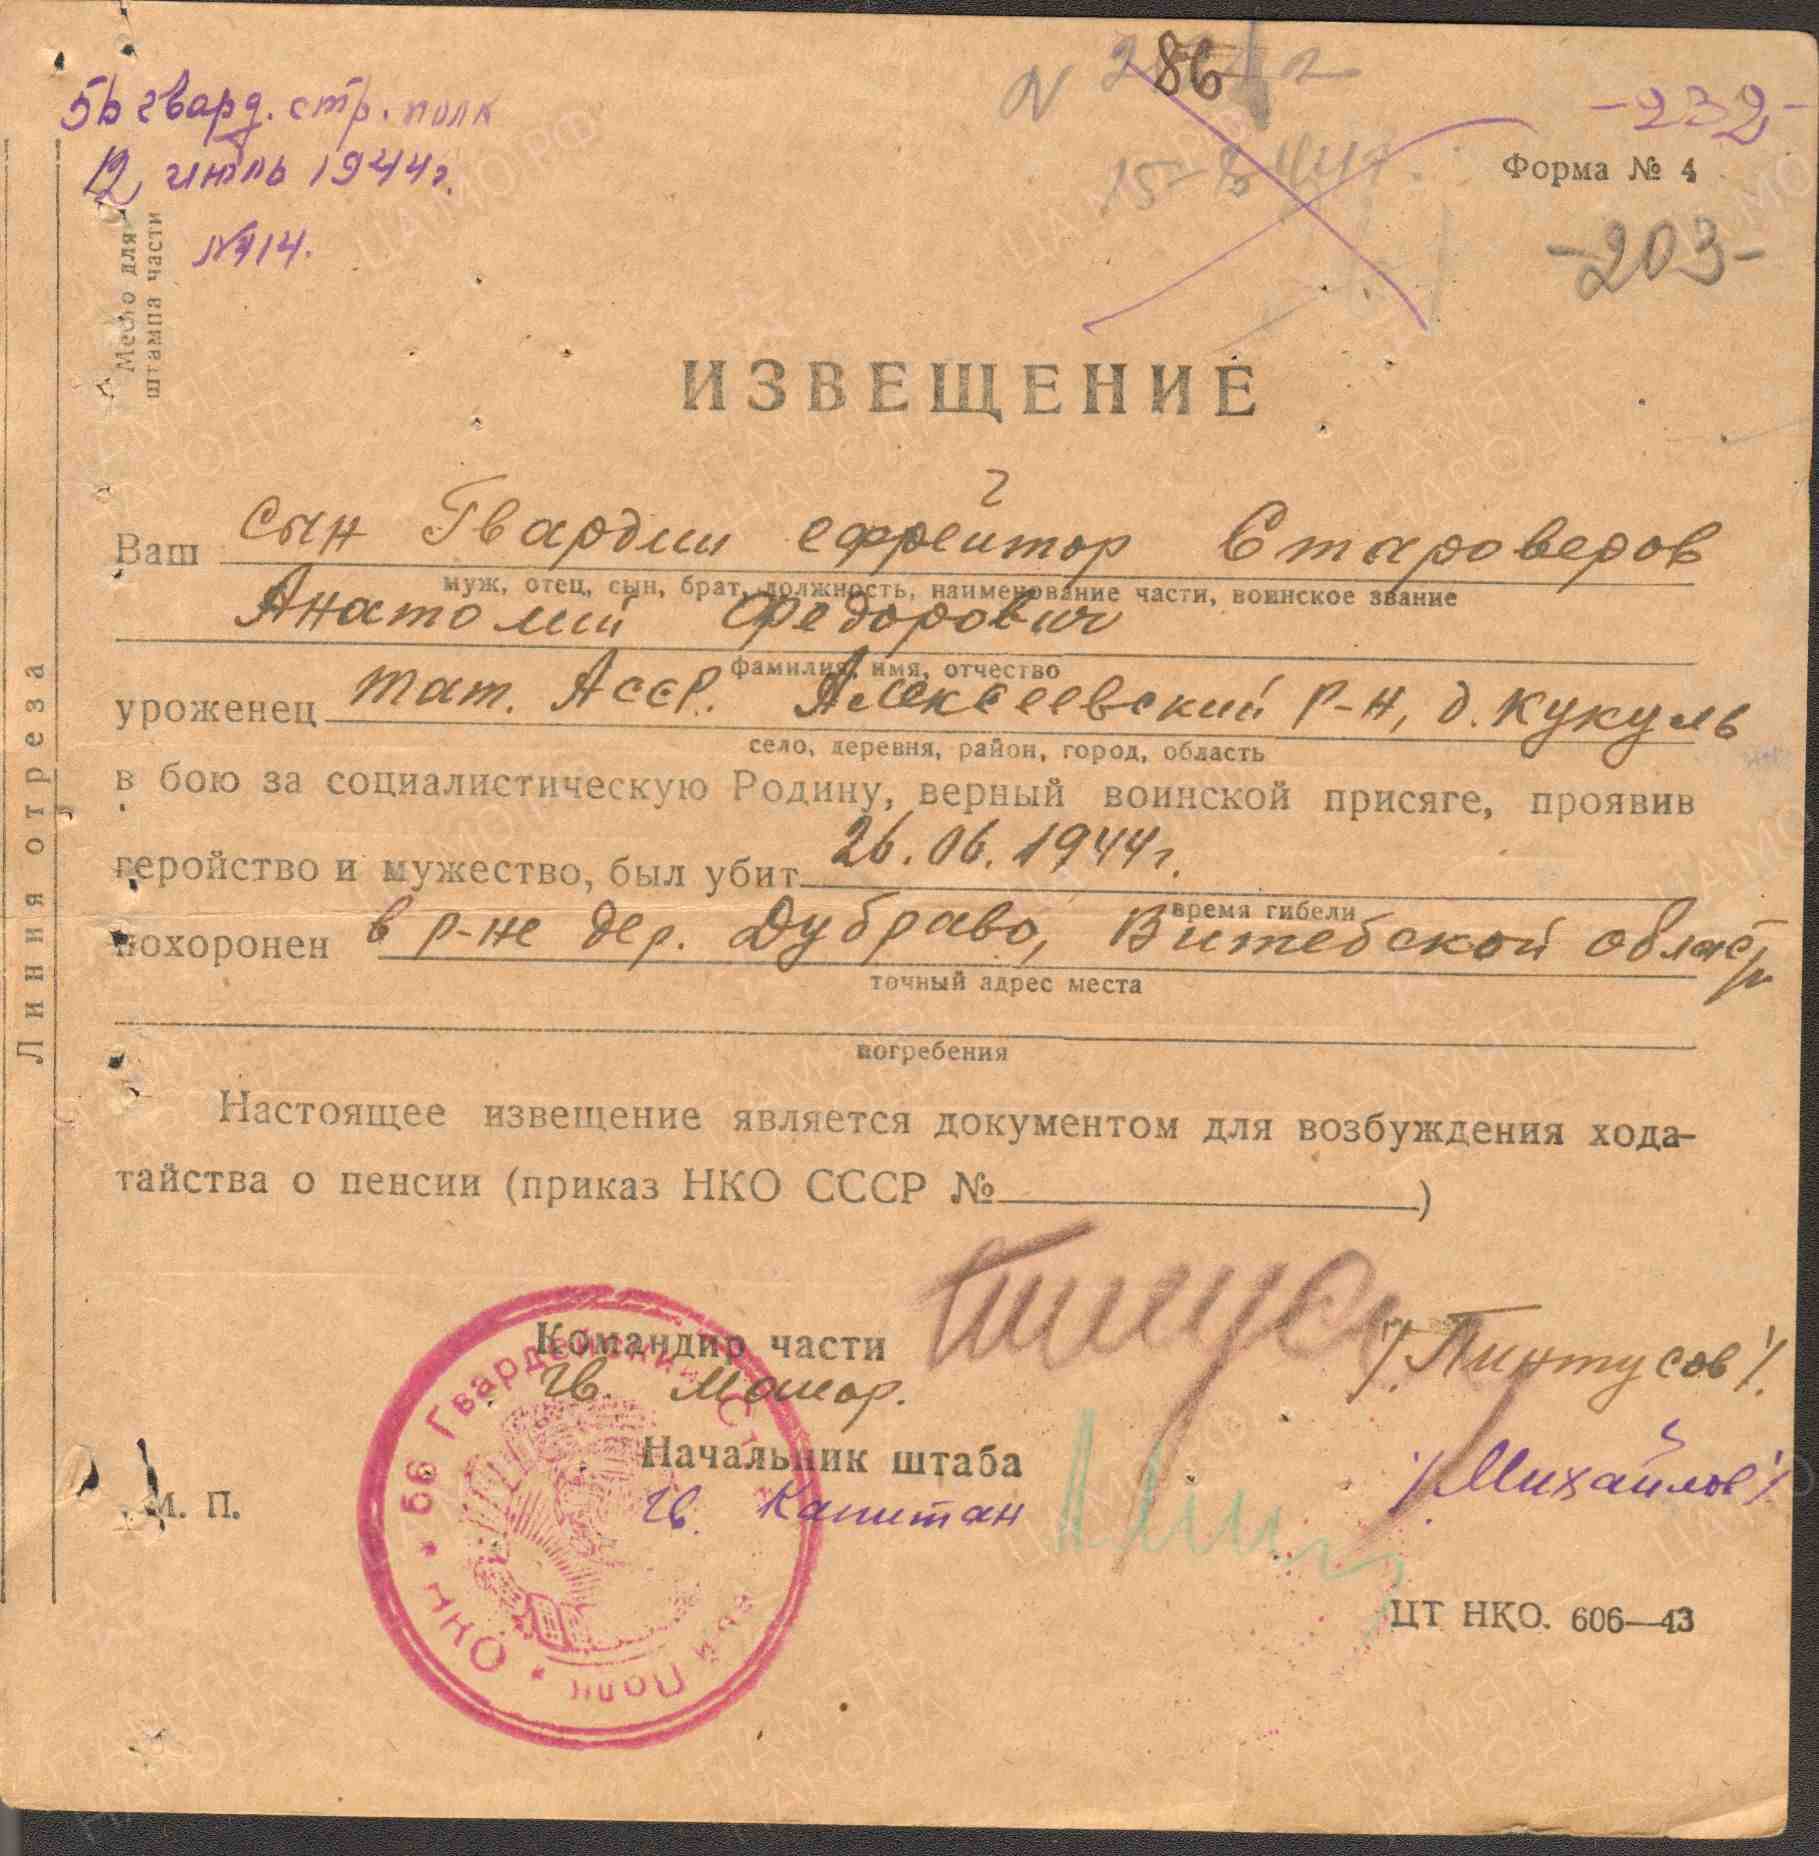 56 гвард. стр. полк
12 июль 1944г.
№414.
Место для
штампа части
N
86
-232-
Форма № 4
-203-
ИЗВЕЩЕНИЕ
Ваш сын Гвардии ефрейтор Староверов
муж, отец, сын, брат, должность, наименование части, воинское звание
Анатолий Федорович
фамилия, имя, отчество
уроженец тат. АССР. Алексеевский р-н, д. Кукуль
село, деревня, район, город, область
в бою за социалистическую Родину, верный воинской присяге, проявив
геройство и мужество, был убит 26.06.1944г.
время гибели
похоронен в р-не дер. Дубраво, Витебской области
точный адрес места
погребения
Настоящее извещение является документом для возбуждения хода-
тайства о пенсии (приказ НКО СССР №)
Командир части
Гв. Майор. /Пинтусов/.
Начальник штаба
Гв. Капитан /Михайлов/
М. П.
ЦТ НКО. 606—43
Линия отреза
НКО * 66 Гвардейский Ст Полк *